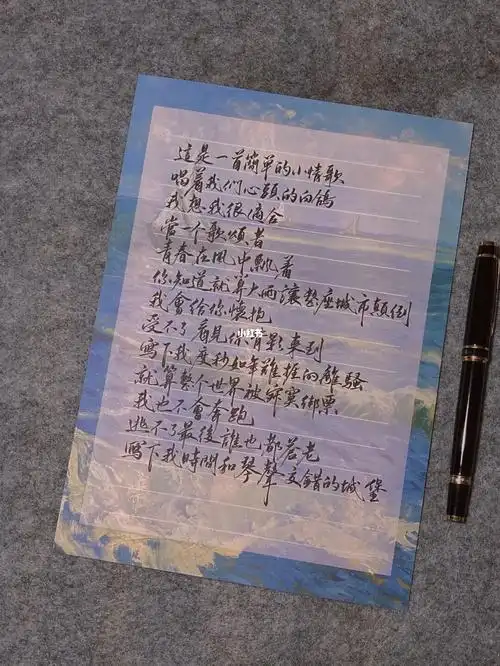 這是一首簡單的小情歌
唱着我們心頭的白鴿
我想我很適合
當一个歌頌者
青春在風中飄着
你知道就算大雨讓整座城市顛倒
我會給你懷抱
受不了看見你背影來到
寫下我度秒如年難捱的離騷
就算整个世界被寂寞綁票
我也不會奔跑
逃不了最後誰也都蒼老
寫下我時間和琴聲交錯的城堡
小红书